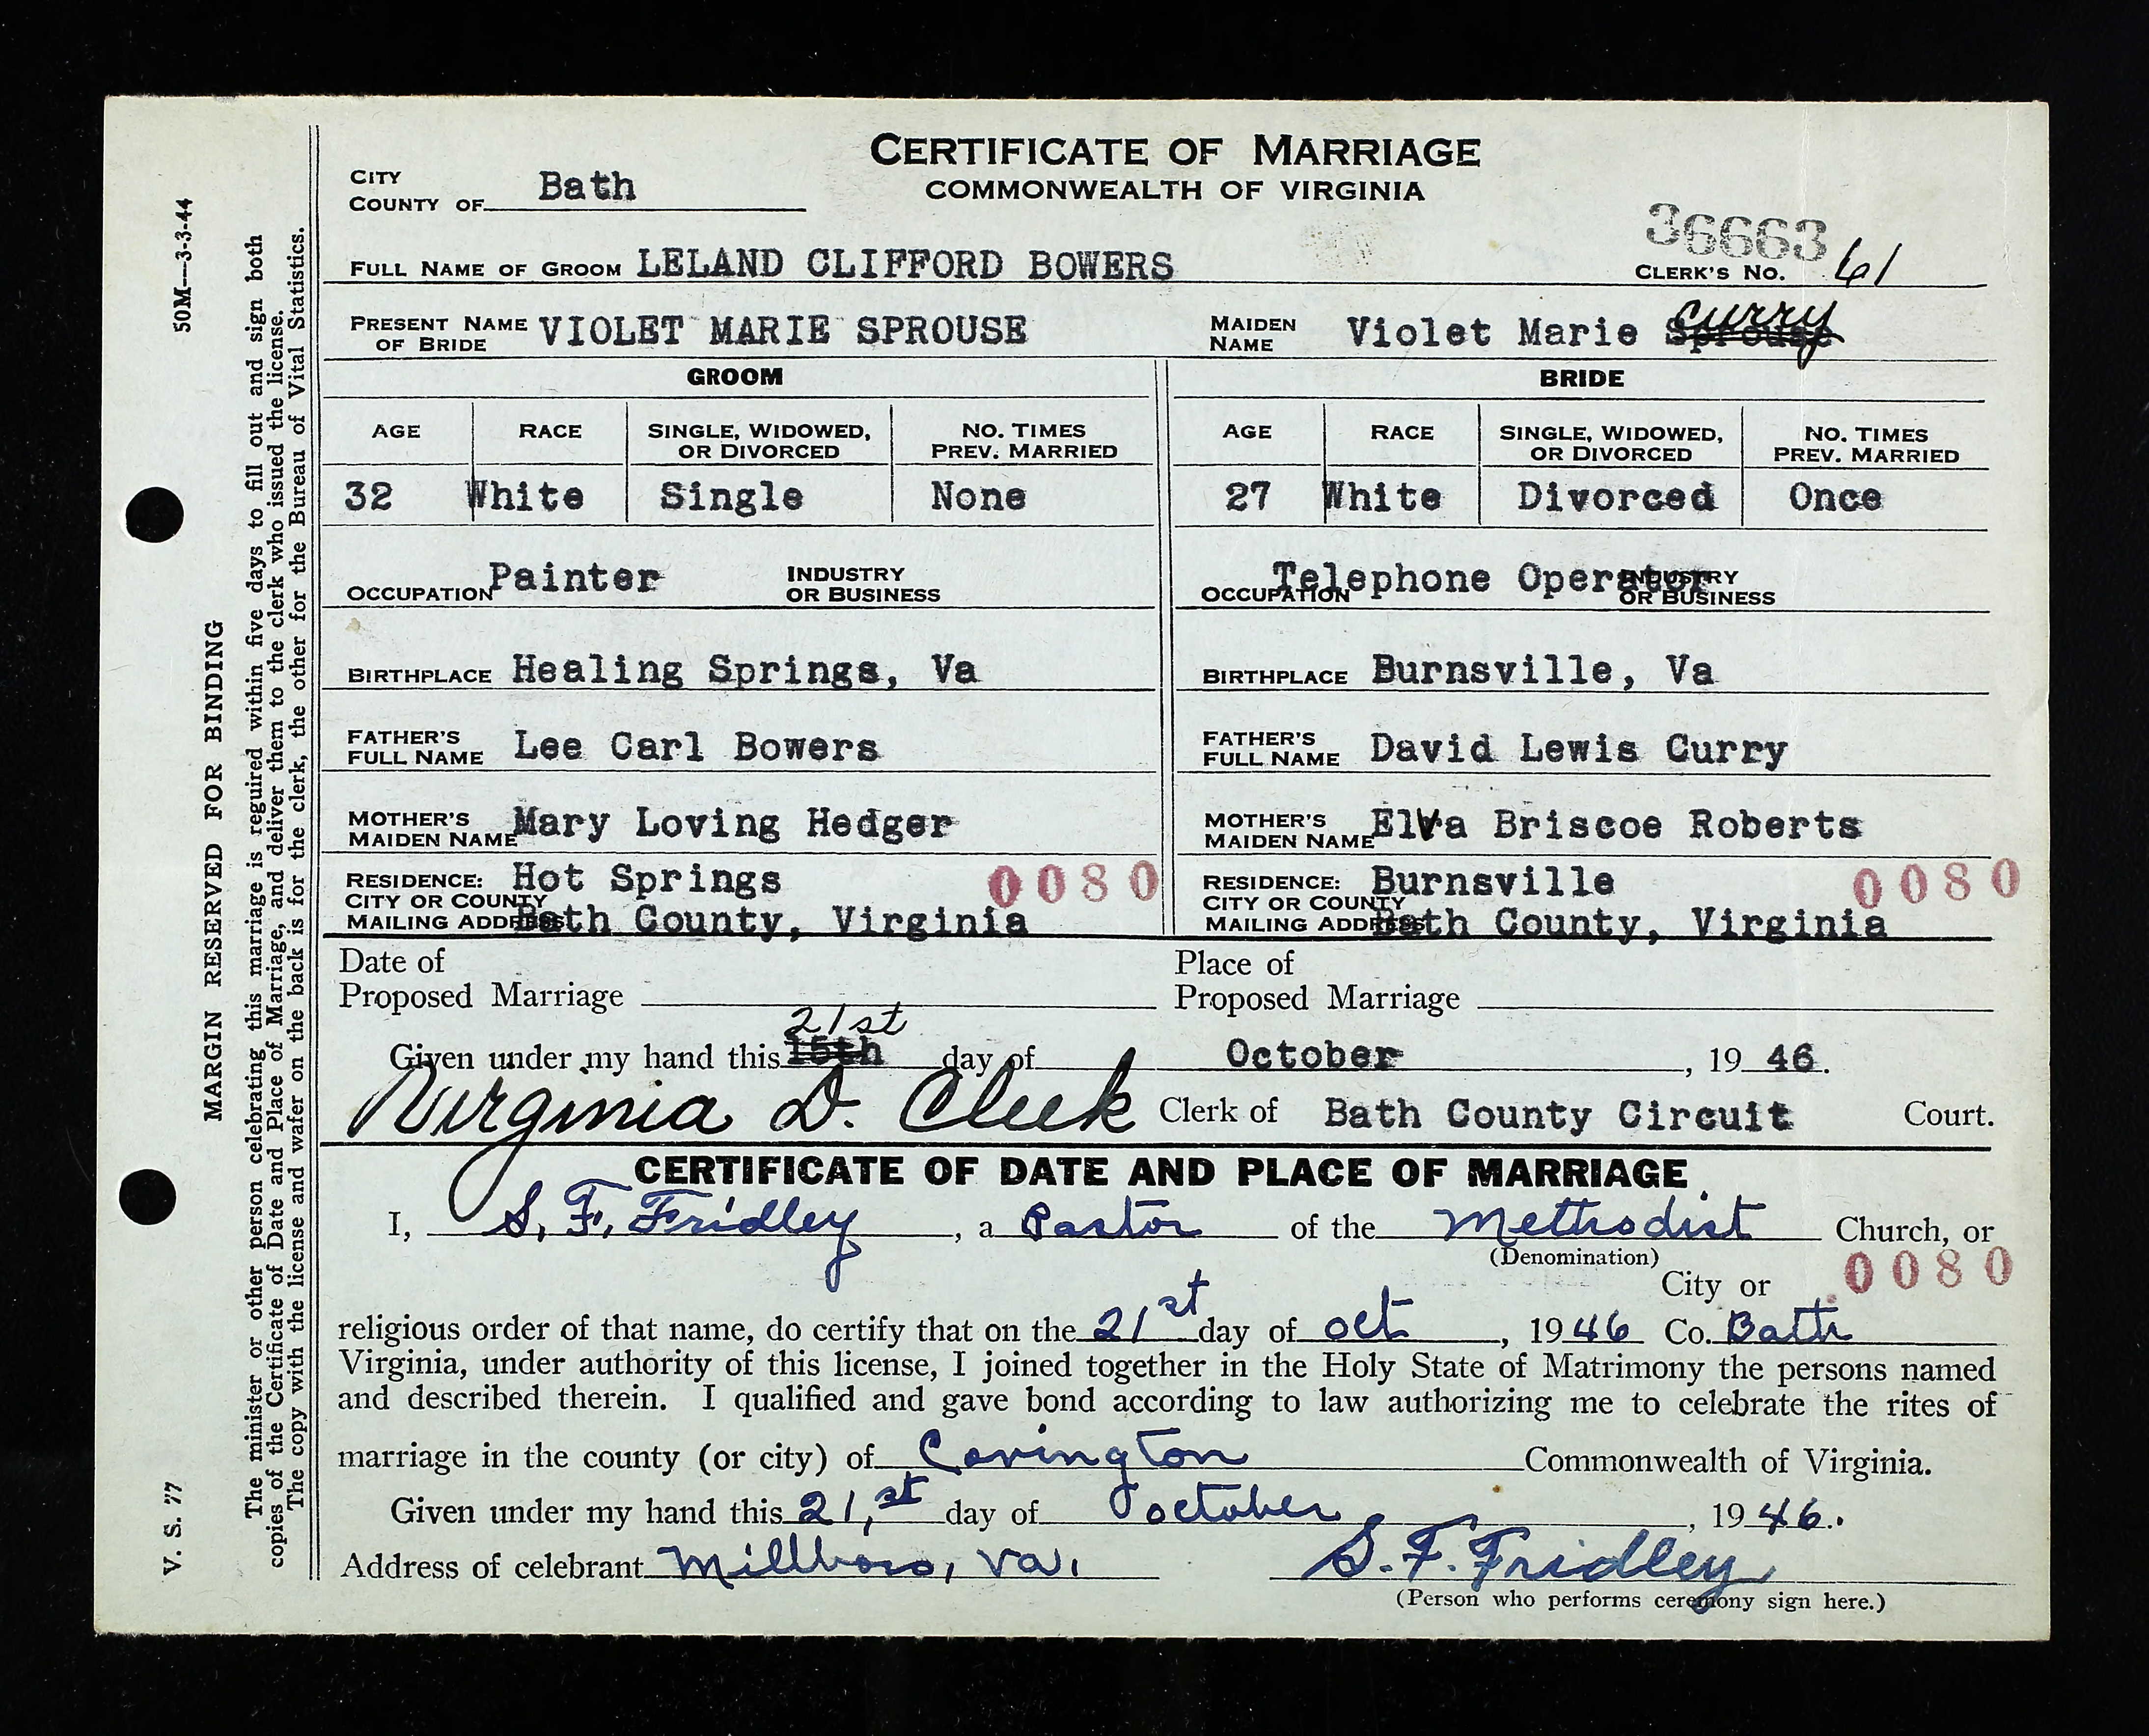 CERTIFICATE OF MARRIAGE
COMMONWEALTH OF VIRGINIA
CITY
COUNTY OF Bath
36663
FULL NAME OF GROOM LELAND CLIFFORD BOWERS CLERK'S NO. 61
PRESENT NAME OF BRIDE VIOLET MARIE SPROUSE MAIDEN NAME Violet Marie Sprouse curry
GROOM BRIDE
AGE RACE SINGLE, WIDOWED, OR DIVORCED NO. TIMES PREV. MARRIED AGE RACE SINGLE, WIDOWED, OR DIVORCED NO. TIMES PREV. MARRIED
32 White Single None 27 White Divorced Once
OCCUPATION Painter INDUSTRY OR BUSINESS OCCUPATION Telephone Operator INDUSTRY OR BUSINESS
BIRTHPLACE Healing Springs, Va BIRTHPLACE Burnsville, Va
FATHER'S FULL NAME Lee Carl Bowers FATHER'S FULL NAME David Lewis Curry
MOTHER'S MAIDEN NAME Mary Loving Hedger MOTHER'S MAIDEN NAME Elva Briscoe Roberts
RESIDENCE: Hot Springs 0080 RESIDENCE: Burnsville 0080
CITY OR COUNTY CITY OR COUNTY
MAILING ADDRESS Bath County, Virginia MAILING ADDRESS Bath County, Virginia
Date of Place of
Proposed Marriage Proposed Marriage
21st
Given under my hand this 15th day of October, 19 46.
Virginia D. Cleek Clerk of Bath County Circuit Court.
CERTIFICATE OF DATE AND PLACE OF MARRIAGE.
I, S. F. Fridley, a Pastor of the Methodist Church, or
(Denomination)
City or 0080
religious order of that name, do certify that on the 21st day of oct, 1946 Co. Bath
Virginia, under authority of this license, I joined together in the Holy State of Matrimony the persons named
and described therein. I qualified and gave bond according to law authorizing me to celebrate the rites of
marriage in the county (or city) of Covington Commonwealth of Virginia.
Given under my hand this 21,st day of october, 1946.
Address of celebrant Millboro, Va. S. F. Fridley
(Person who performs ceremony sign here.)
V. S. 77
50M—3-3-44
MARGIN RESERVED FOR BINDING
The minister or other person celebrating this marriage is required within five days to fill out and sign both
copies of the Certificate of Date and Place of Marriage, and deliver them to the clerk who issued the license.
The copy with the license and wafer on the back is for the clerk, the other for the Bureau of Vital Statistics.